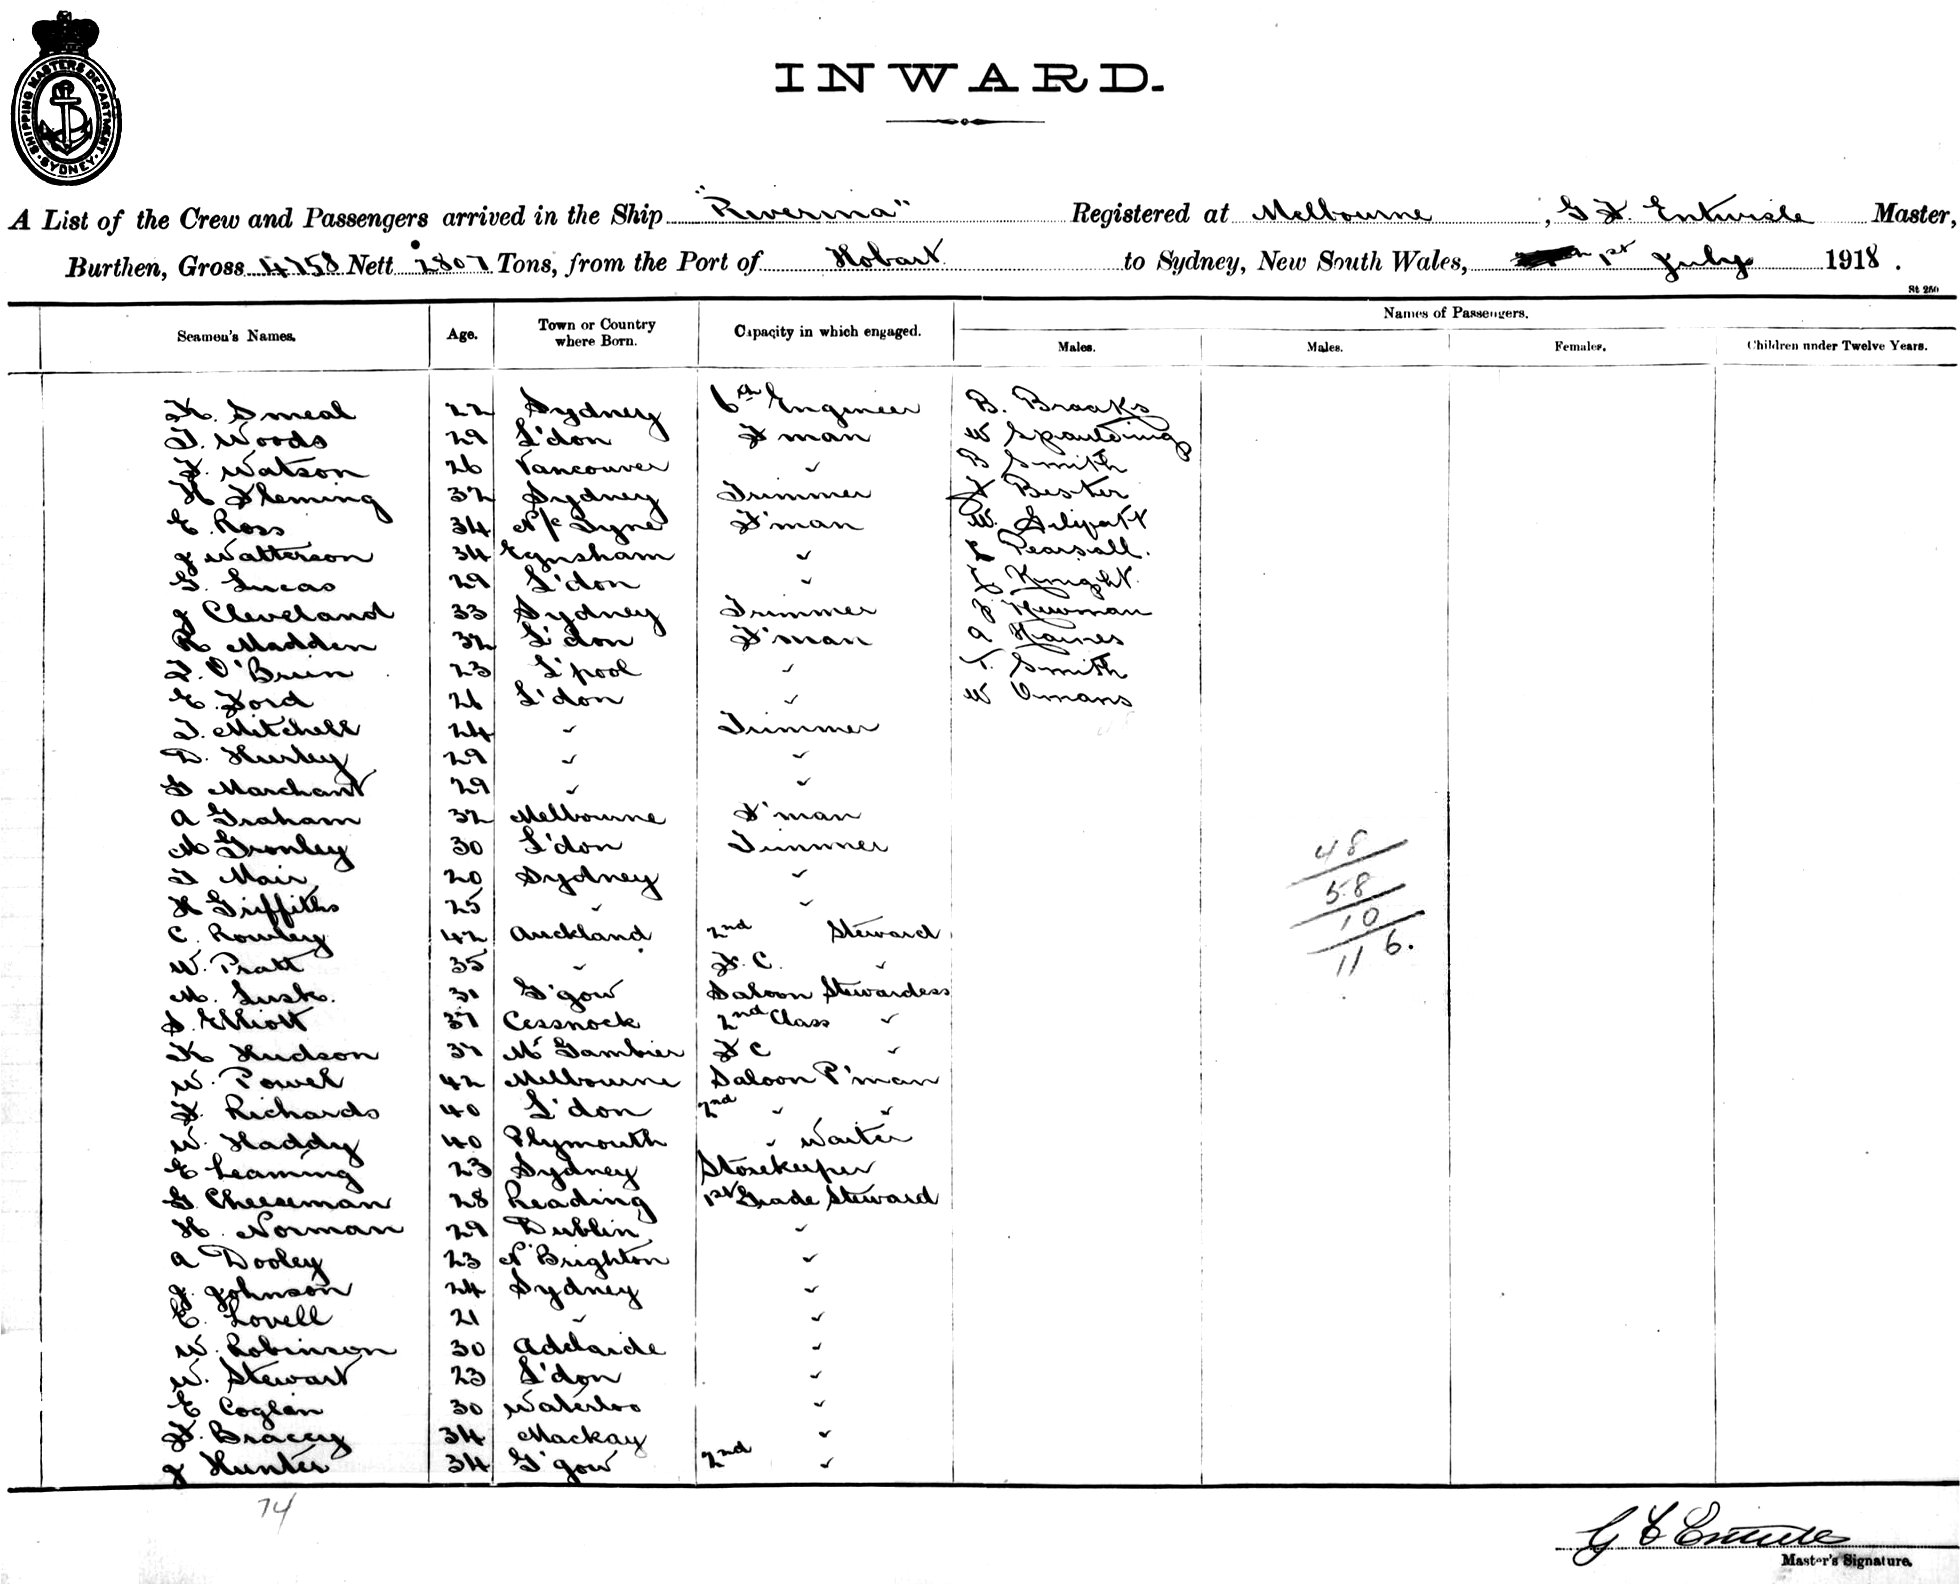 SHIPPING MASTERS DEPARTMENT · SYDNEY ·
INWARD.
A List of the Crew and Passengers arrived in the Ship "Riverina" Registered at Melbourne, G F. Entwisle Master,
Burthen, Gross 4758 Nett 2807 Tons, from the Port of Hobart to Sydney, New South Wales, 1st July 1918.
St 260
Seamen's Names. Age. Town or Country where Born. Capacity in which engaged. Names of Passengers.
Males. Males. Females. Children under Twelve Years.
K. Smeal 22 Sydney 6th Engineer B. Braaks
T. Woods 29 L'don F'man W Spaulding
F. Watson 26 Vancouver " B Smith
H Fleming 32 Sydney Trimmer F Bester
E. Ross 34 N/c Tyne F'man W.
J Watterson 34 Eynsham " Pearsall.
G. Lucas 29 L'don " Knight.
J Cleveland 33 Sydney Trimmer Newman
R Madden 32 L'don F'man A Haines
T. O'Brien 23 L'pool " T. Smith
E. Ford 26 L'don " W Omans
T. Mitchell 24 " Trimmer
D. Hurley 29 " "
G Marchant 29 " "
A Graham 32 Melbourne F'man
M Gronley 30 L'don Trimmer
T Mair 20 Sydney "
H Griffiths 25 " "
C. Rowley 42 Auckland 2nd Steward
W. Pratt 35 " F. C. "
M. Lusk. 31 G'gow Saloon Stewardess
S. Elliott 37 Cessnock 2nd Class "
K Hudson 37 Mt Gambier F C "
W. Powell 42 Melbourne Saloon P'man
F. Richards 40 L'don 2nd " "
W. Haddy 40 Plymouth " Waiter
E Leaming 23 Sydney Storekeeper
G. Cheeseman 28 Reading 1st Grade Steward
H. Norman 29 Dublin "
A Dooley 23 N' Brighton "
J. Johnson 24 Sydney "
C. Lovell 21 " "
W. Robinson 30 Adelaide "
W. Stewart 23 L'don "
E Coglan 30 Waterloo "
F. Bracey 34 Mackay "
J Hunter 34 G'gow 2nd "
48
58
10
116.
74
Master's Signature.